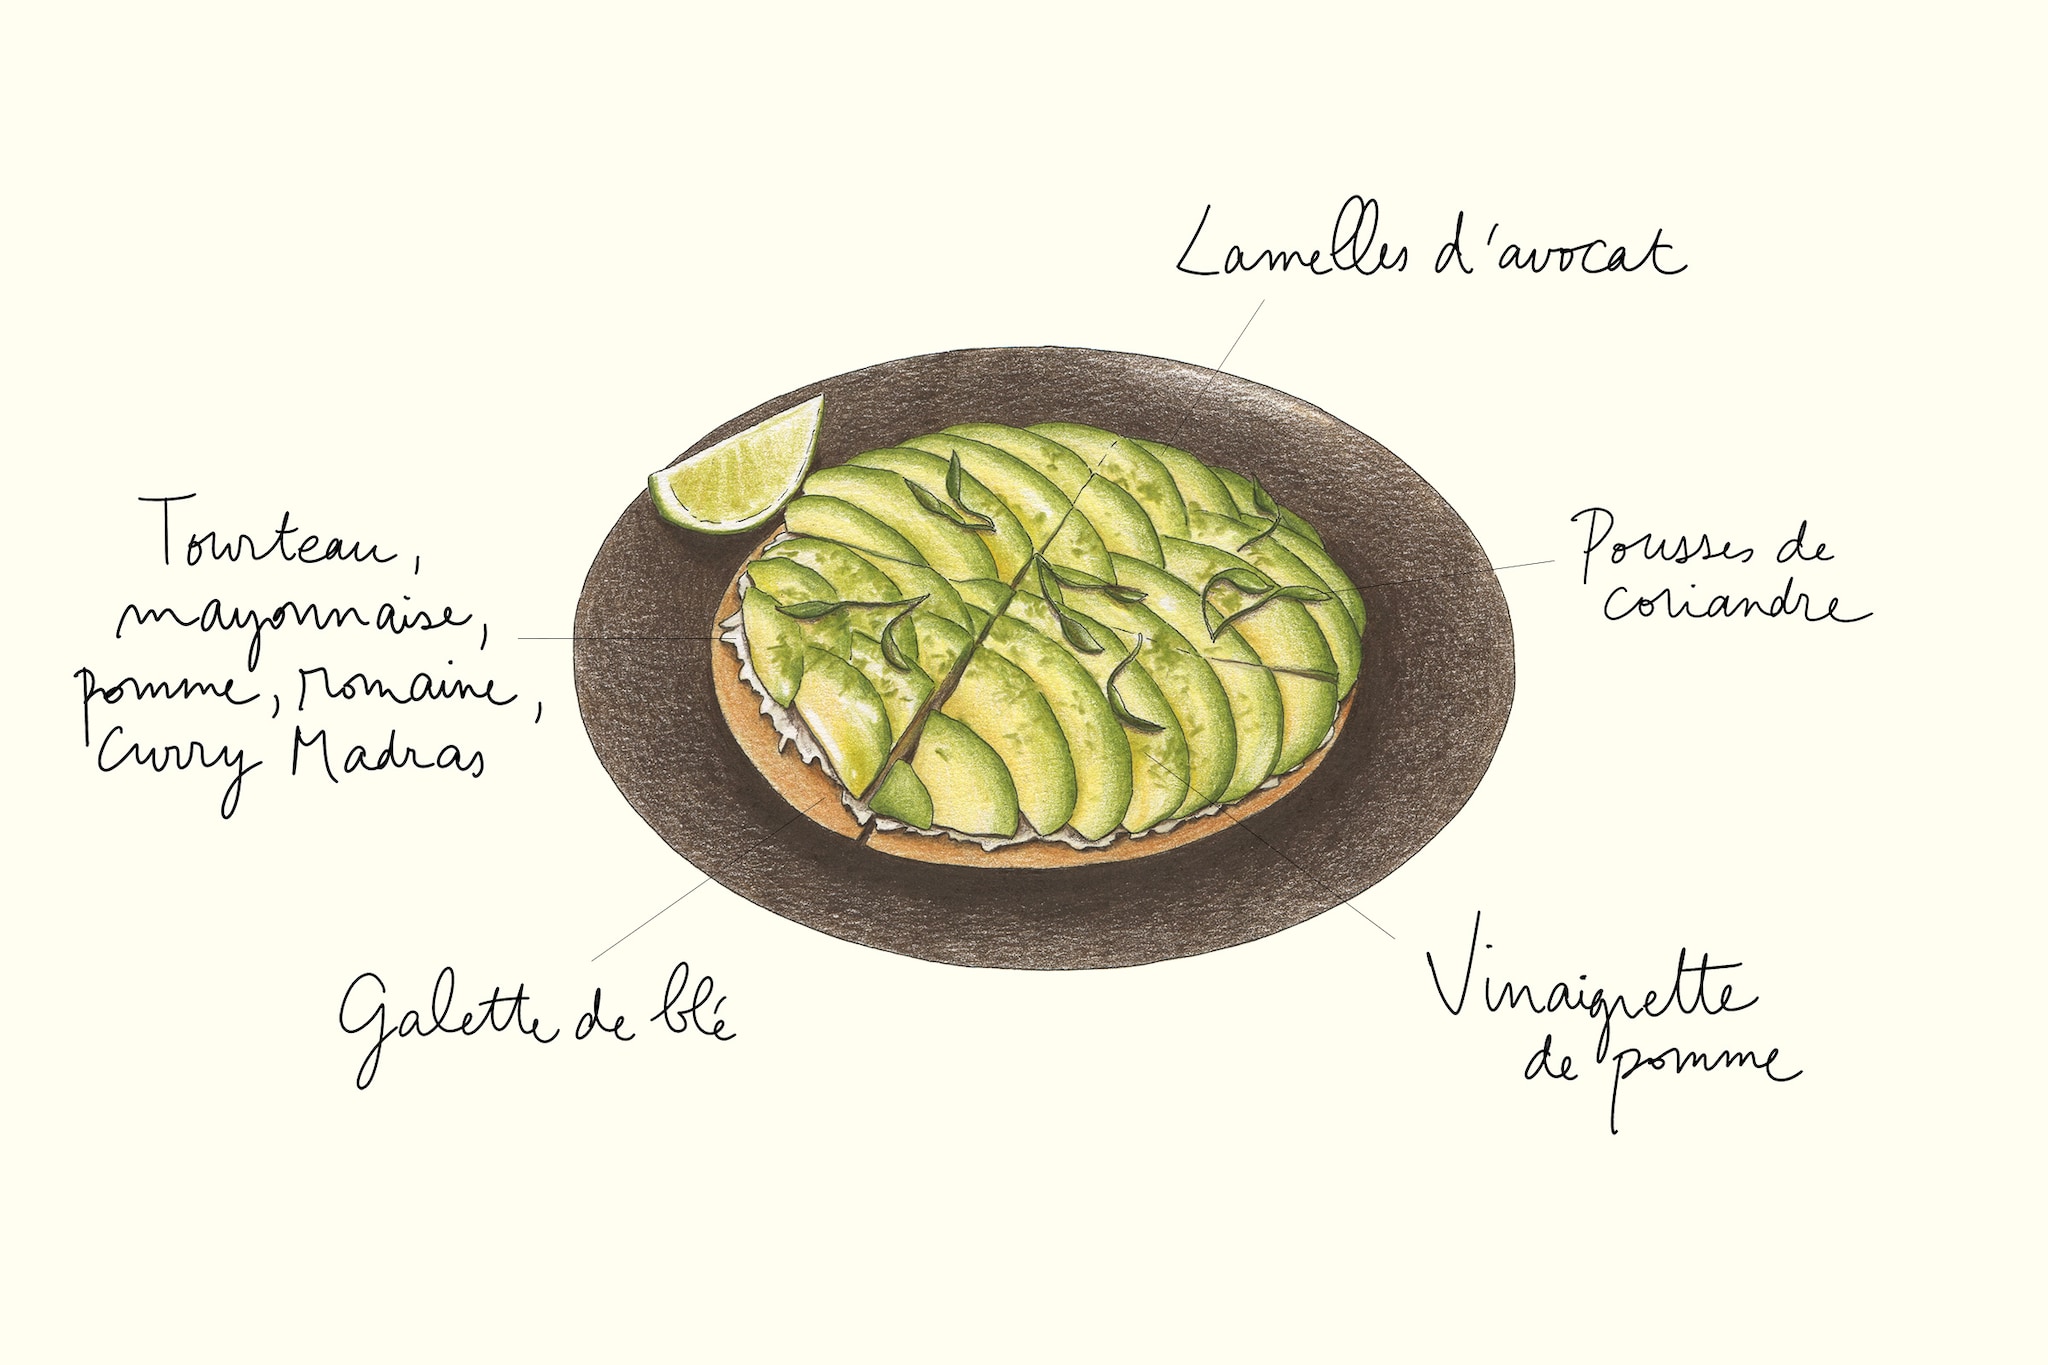 Lamelles d'avocat
Tourteau,
mayonnaise,
pomme, romaine,
Curry Madras
Pousses de
coriandre
Galette de blé
Vinaigrette
de pomme